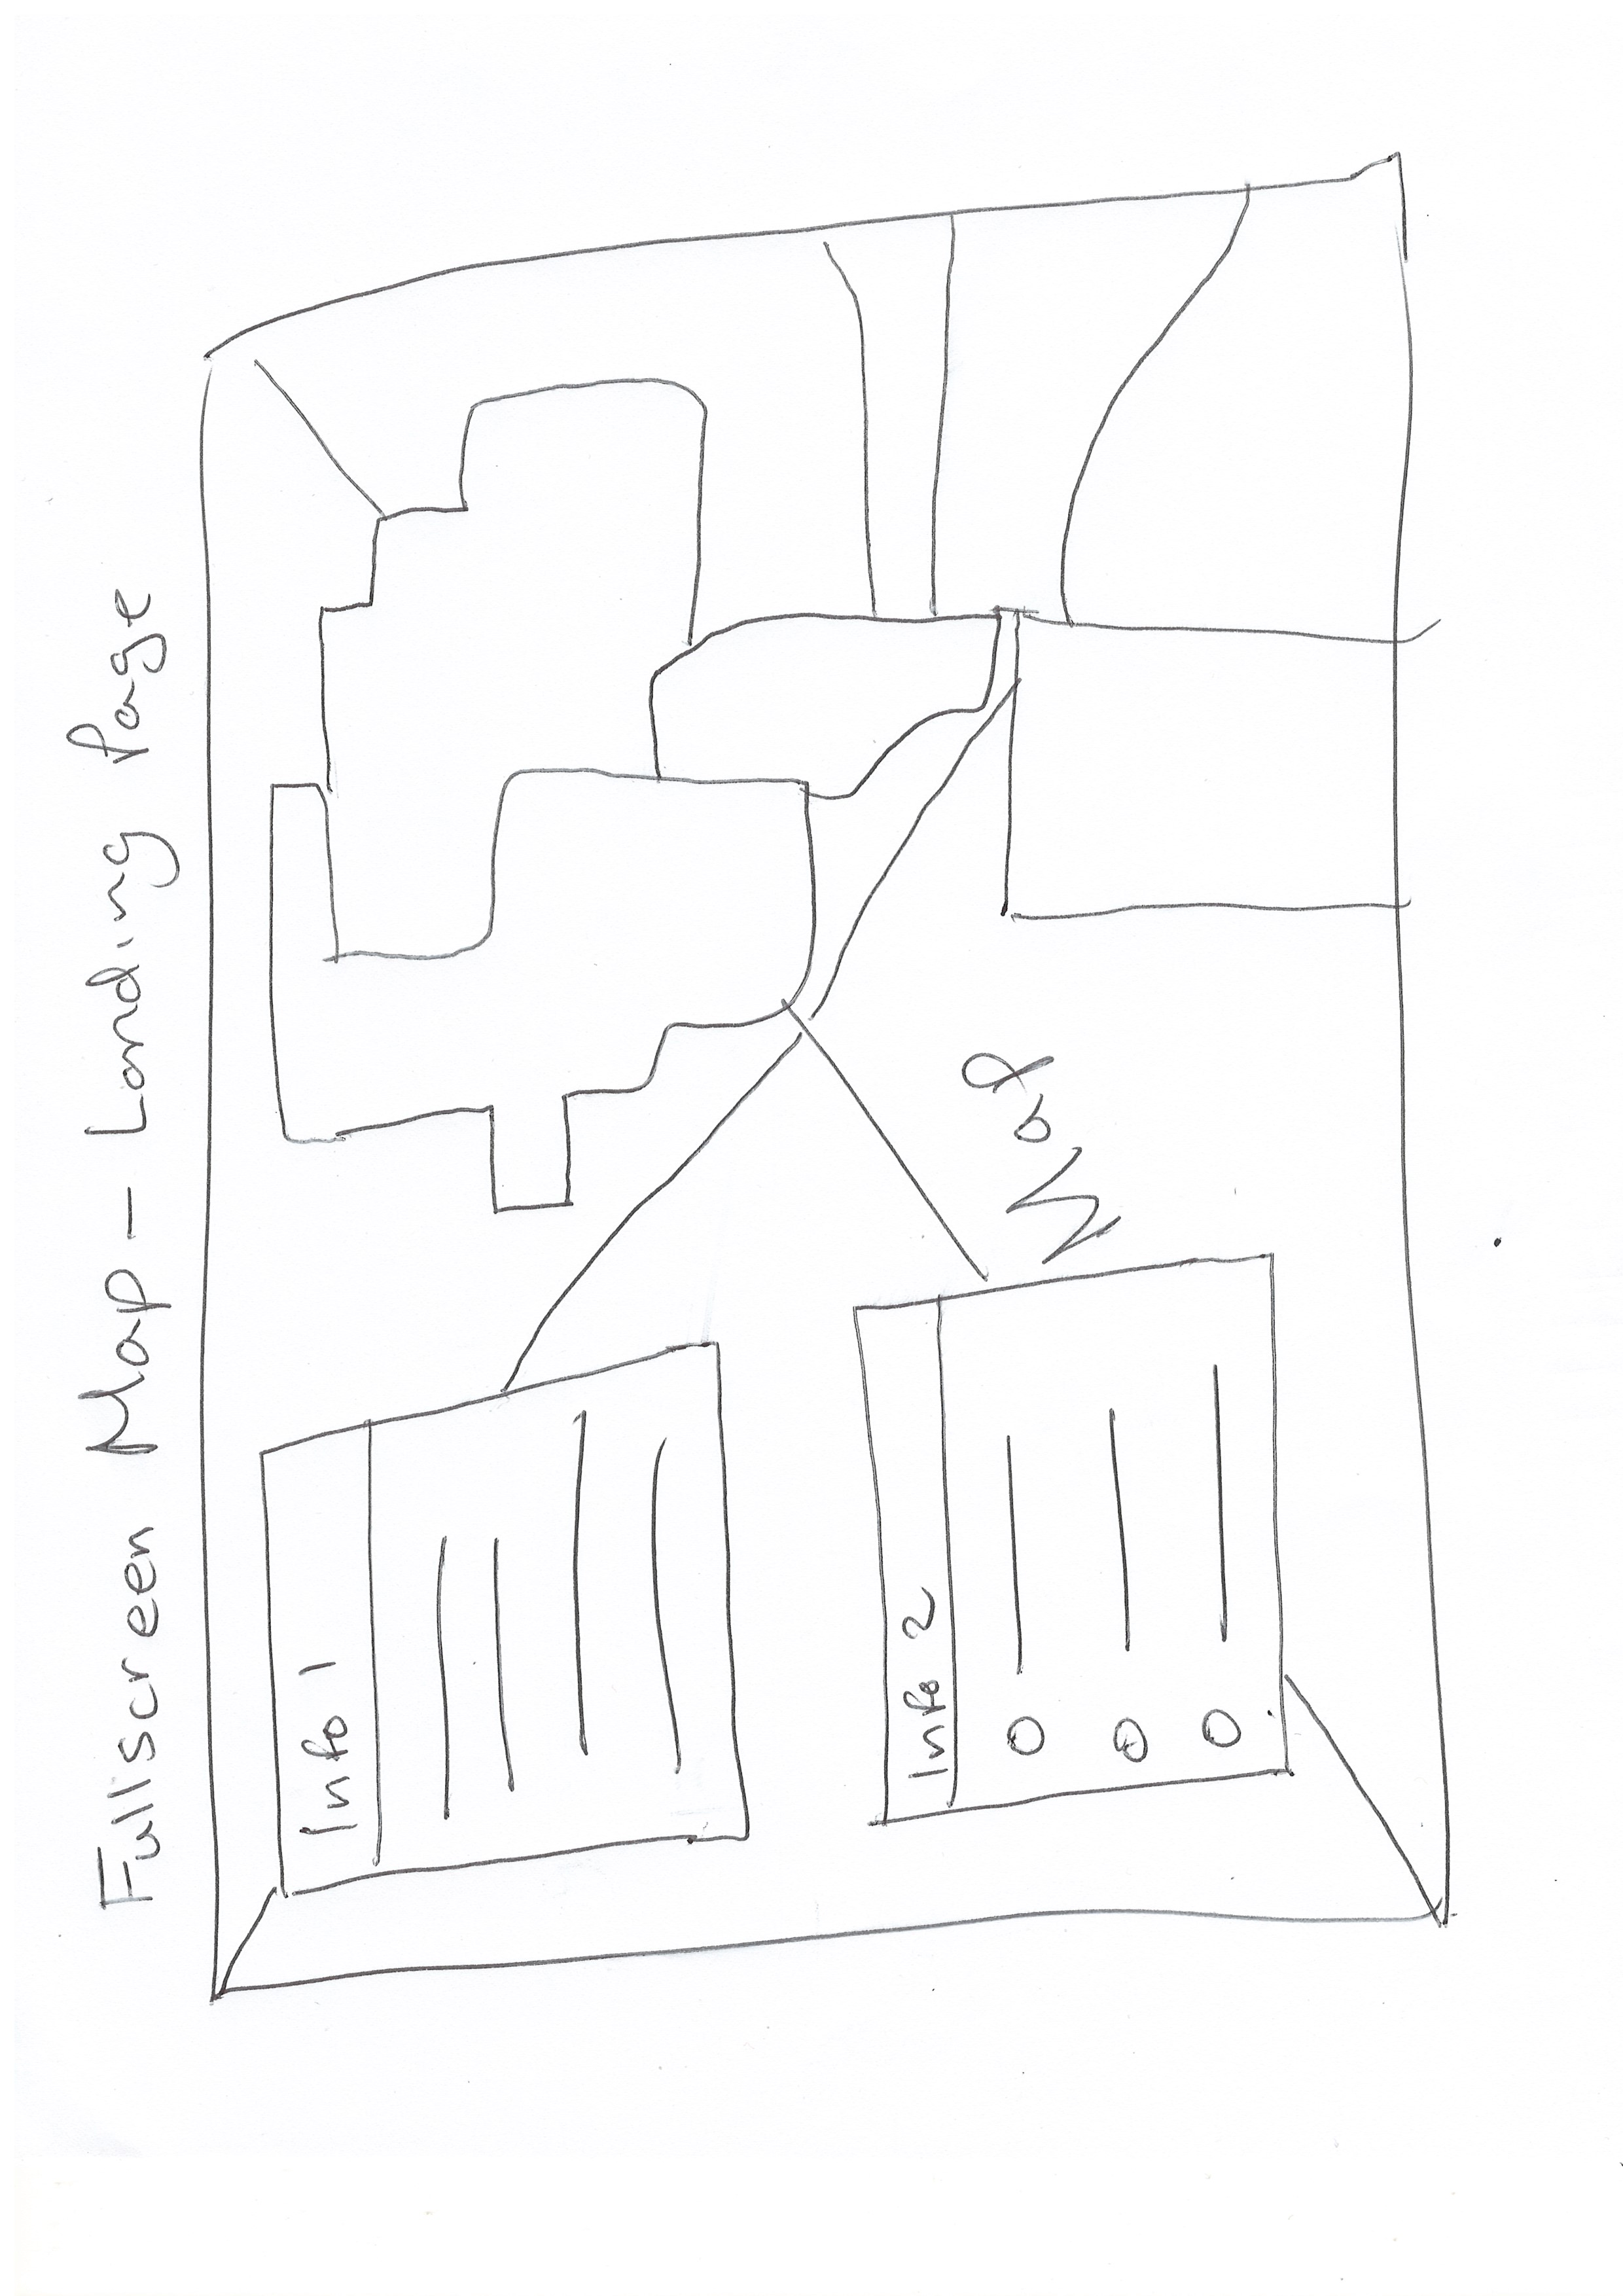 Fullscreen Map - Landing Page
Info 1
Info 2
Map